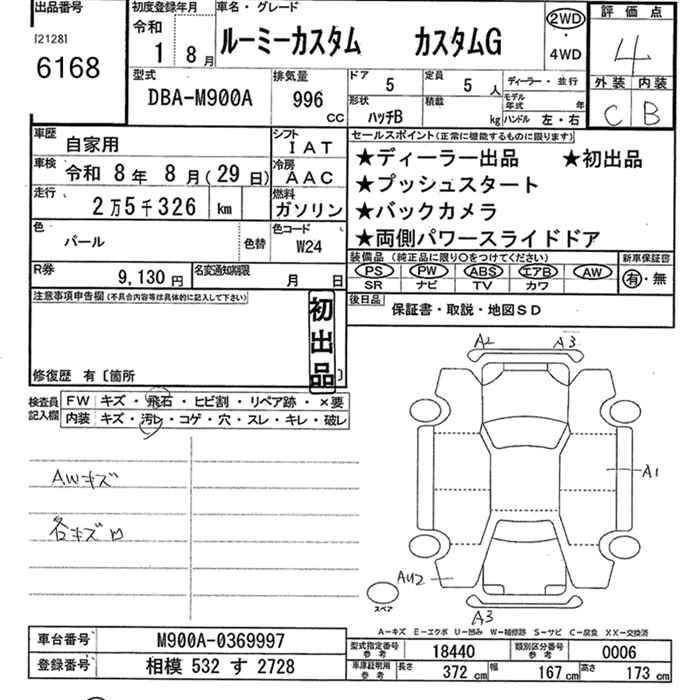 出品番号 初度登録年月 車名・グレード 評価点
[2128] 令和 ルーミーカスタム カスタムG 2WD 4
6168 1 8月 ・ 4WD
型式 排気量 ドア 5 定員 5人 ディーラー・並行 外装 内装
DBA-M900A 996cc 形状 ハッチB 積載 kg モデル年式 年 C B
ハンドル 左・右
車歴 自家用 シフト IAT セールスポイント(正常に機能するものに限ります)
車検 令和 8年 8月(29日) 冷房 AAC ★ディーラー出品 ★初出品
走行 2万5千326 km 燃料 ガソリン ★プッシュスタート
★バックカメラ
色 パール 色替 色コード W24 ★両側パワースライドドア
装備品(純正品に限り○をつけてください) 新車保証書
R券 9,130円 名変通知期限 月 日 PS PW ABS エアB AW 有・無
SR ナビ TV カワ
注意事項申告欄(不具合内容等は具体的に記入して下さい) 後日品 保証書・取説・地図SD
初出品
修復歴 有〔箇所 〕
検査員記入欄 FW キズ・飛石・ヒビ割・リペア跡・×要
内装 キズ・汚レ・コゲ・穴・スレ・キレ・破レ
A2 A3
AWキズ
A1
各キズ凹
AU2
スペア
A3
A-キズ E-エクボ U-凹み W-補修跡 S-サビ C-腐食 XX-交換済
車台番号 M900A-0369997 型式指定番号参考 18440 類別区分番号参考 0006
登録番号 相模 532 す 2728 車庫証明用参考 長さ 372 cm 幅 167 cm 高さ 173 cm